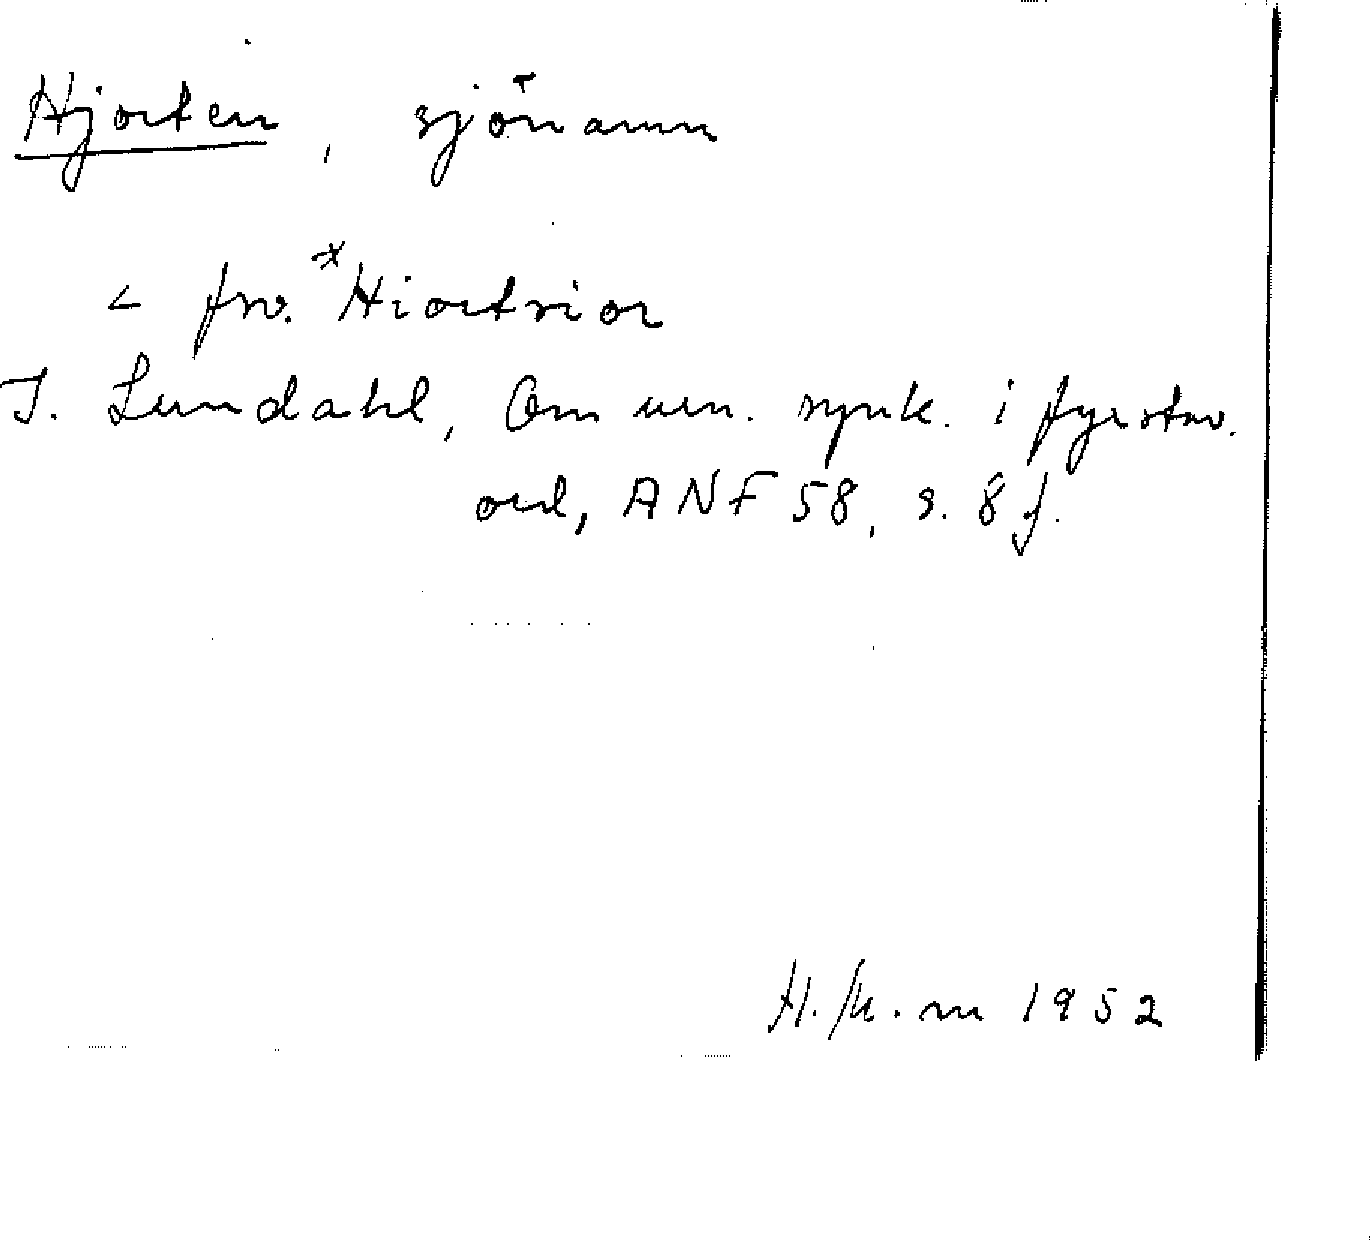 Hjorten, sjönamn
< fsv. *Hiortsior
I. Lundahl, Om uen. synk. i fyrstav.
ord, ANF 58, s. 8 f.
H. 1952